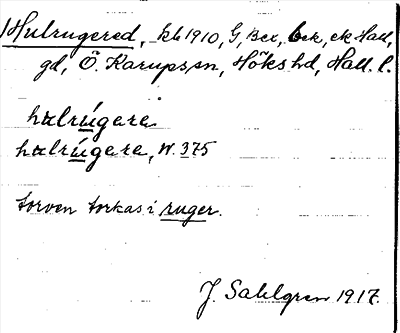 Hulrugered, kb 1910, G, Bex, bek, ek Hall,
gd, Ö. Karups sn, Höks hd, Hall. l.
hulrúgere.
hulrúgere, W. 375
torven torkas i ruger.
J. Sahlgren 1917.